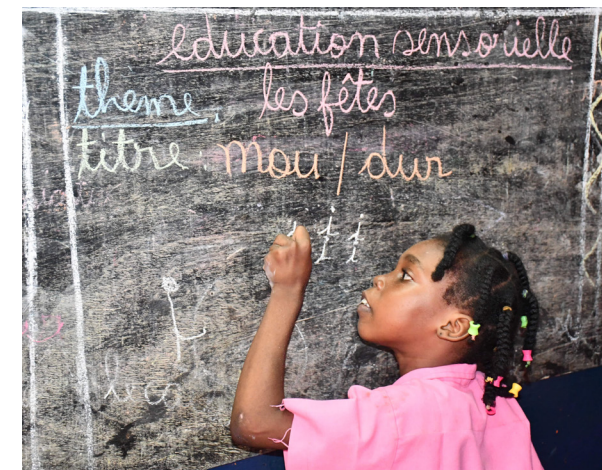 education sensorielle
theme: les fêtes
titre: mou / dur
i i i
i i